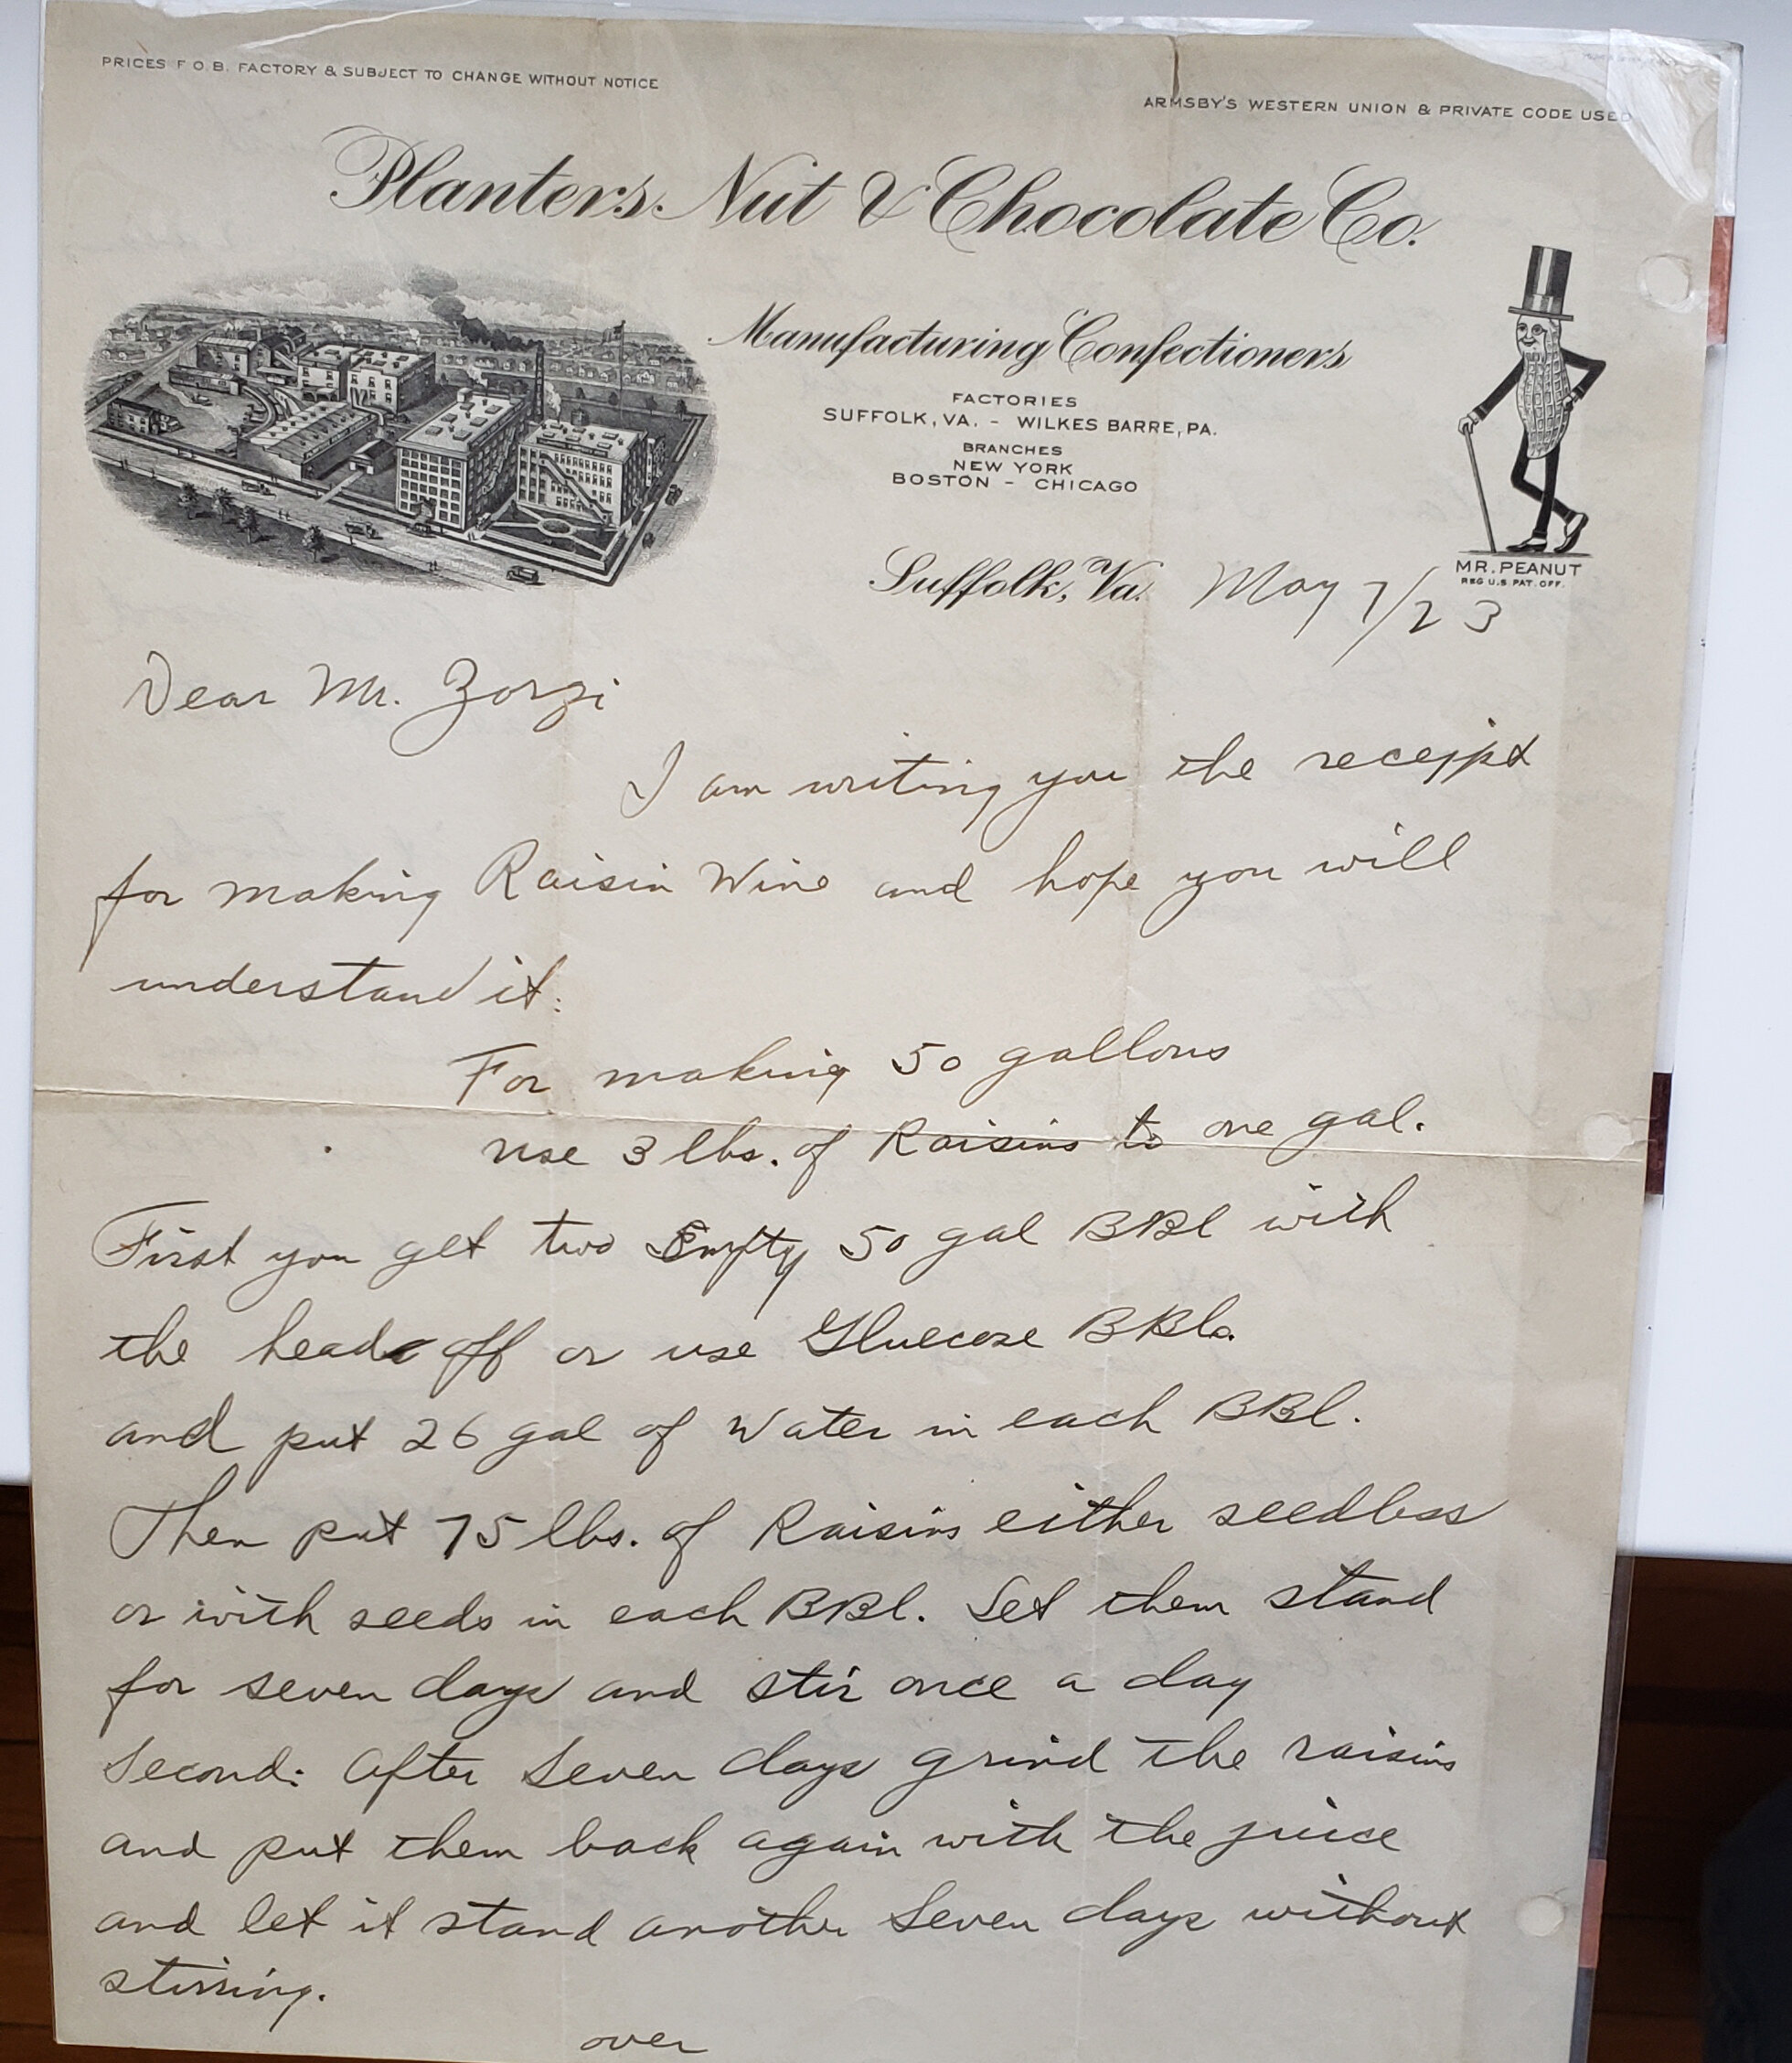 PRICES F.O.B. FACTORY & SUBJECT TO CHANGE WITHOUT NOTICE
ARMSBY'S WESTERN UNION & PRIVATE CODE USED
Planters Nut & Chocolate Co.
Manufacturing Confectioners
FACTORIES
SUFFOLK, VA. - WILKES BARRE, PA.
BRANCHES
NEW YORK
BOSTON - CHICAGO
MR. PEANUT
REG U.S. PAT. OFF.
Suffolk, Va. May 7/23
Dear Mr. Zorzi
I am writing you the receipt
for making Raisin Wine and hope you will
understand it:
For making 50 gallons
use 3 lbs. of Raisins to one gal.
First you get two Empty 50 gal BBl with
the heads off or use Gluecose BBls.
and put 26 gal of Water in each BBl.
Then put 75 lbs. of Raisins either seedless
or with seeds in each BBl. Let them stand
for seven days and stir once a day
Second: After Seven days grind the raisins
and put them back again with the juice
and let it stand another Seven days without
stirring.
over